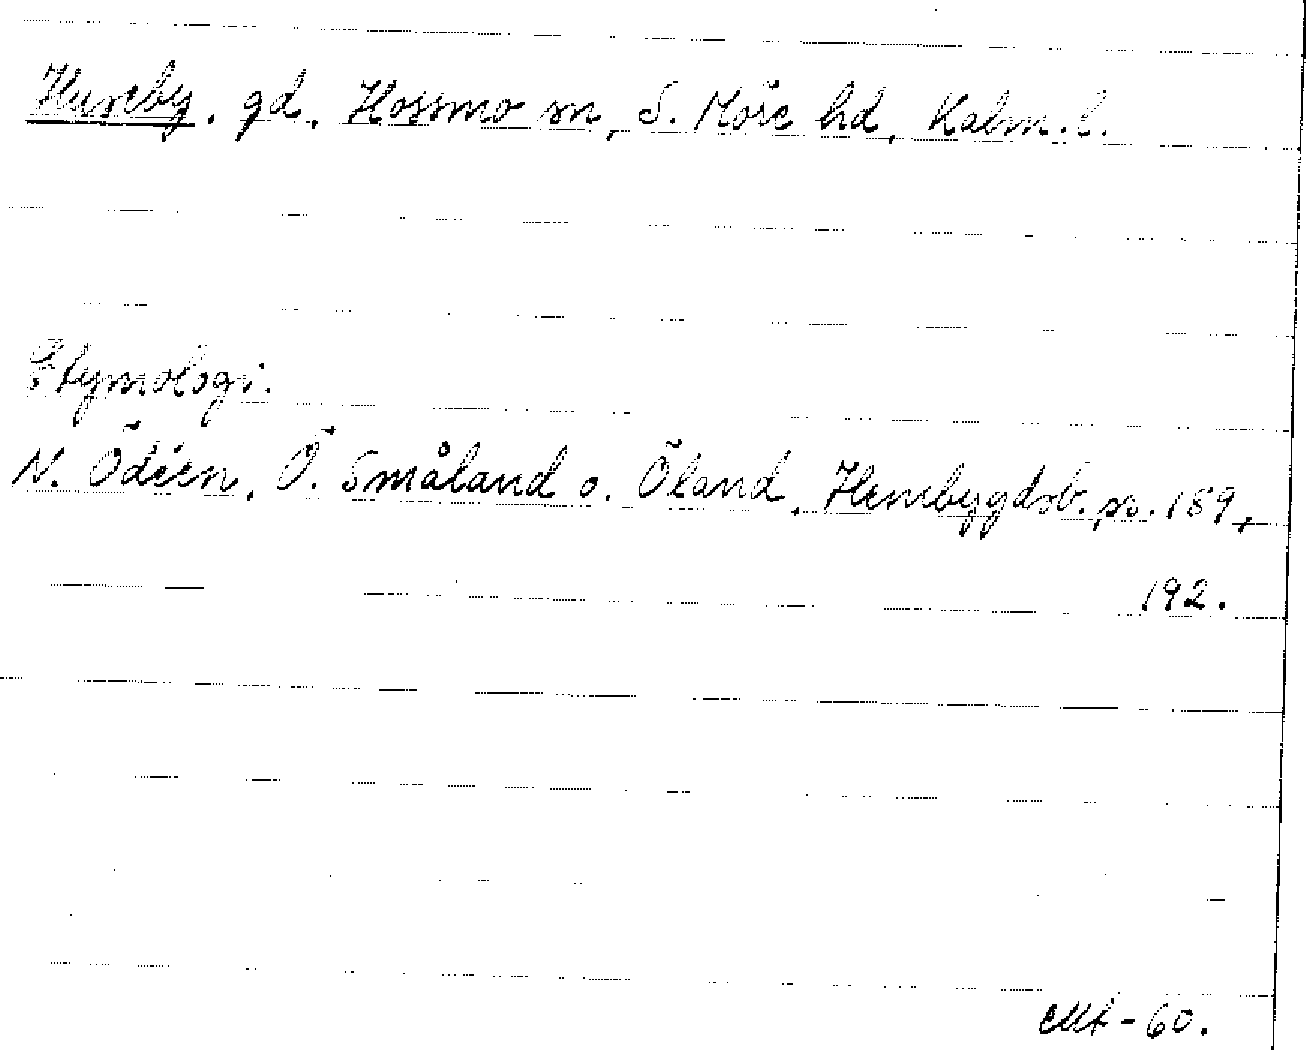 Huseby, gd, Hossmo sn, S. Möre hd, Kalm. l.
Etymologi.
N. Ödéen, Ö. Småland o. Öland, Hembygdsb. ss. 189,
192.
-60.